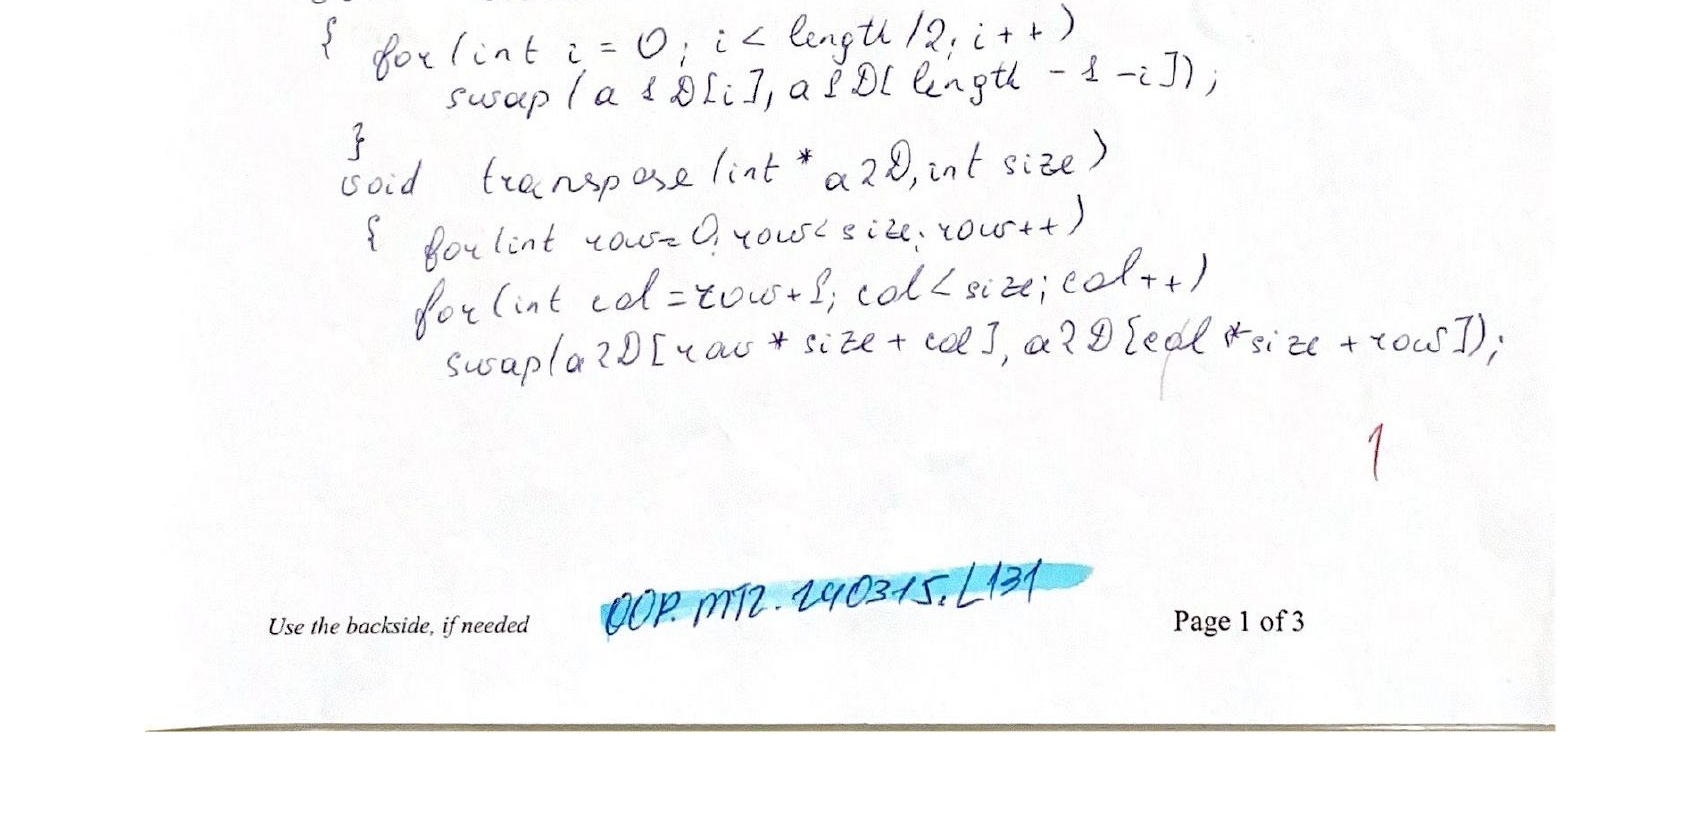 { for(int i = 0; i < length/2; i++)
swap(a1D[i], a1D[length - 1 - i]);
}
void transpose(int* a2D, int size)
{ for(int row=0; row<size; row++)
for(int col=row+1; col<size; col++)
swap(a2D[row*size+col], a2D[col*size+row]);
1
OOP.MT2.240315.L131
Use the backside, if needed
Page 1 of 3